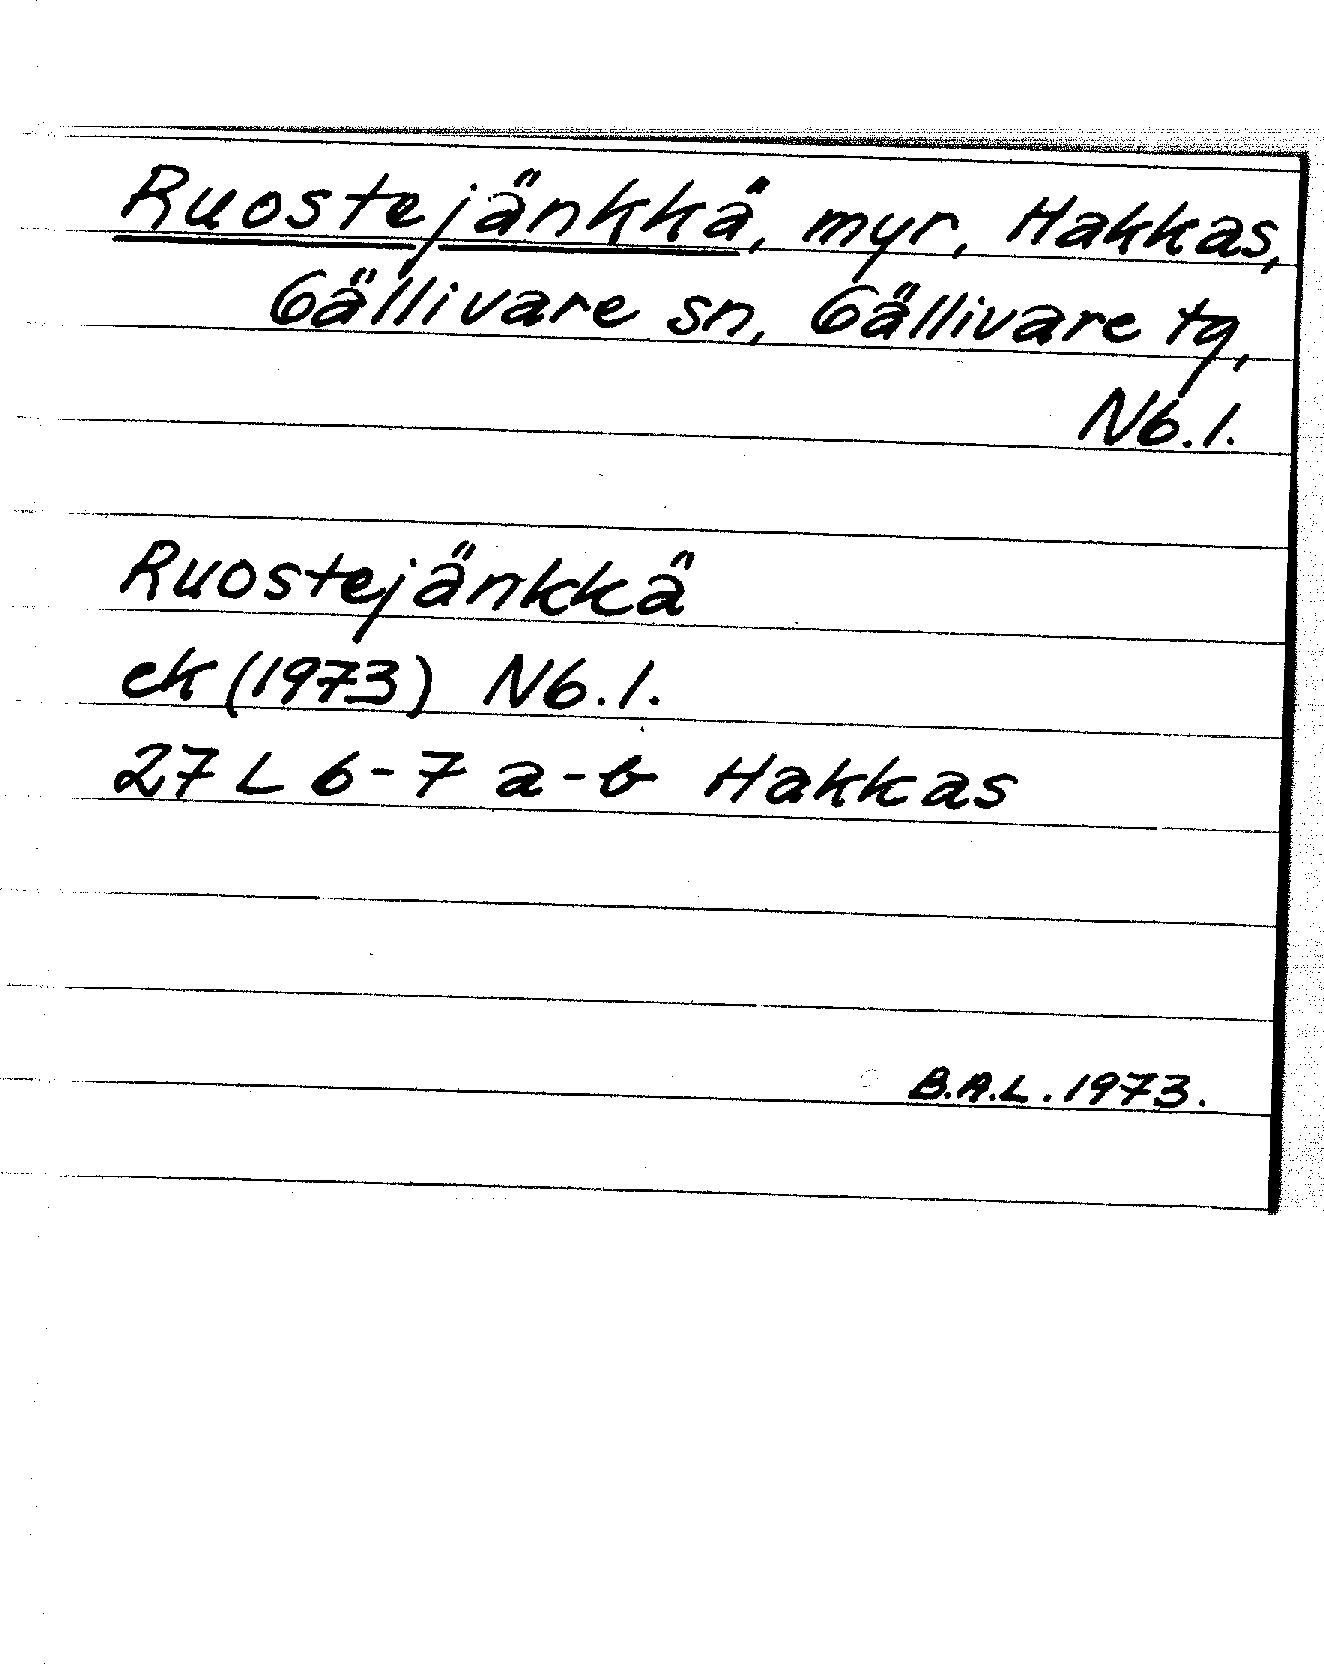 Ruostejänkkä, myr, Hakkas,
Gällivare sn, Gällivare tg,
Nb.l.
Ruostejänkkä
ek (1973) Nb.l.
27 L 6-7 a-b Hakkas
B.A.L. 1973.